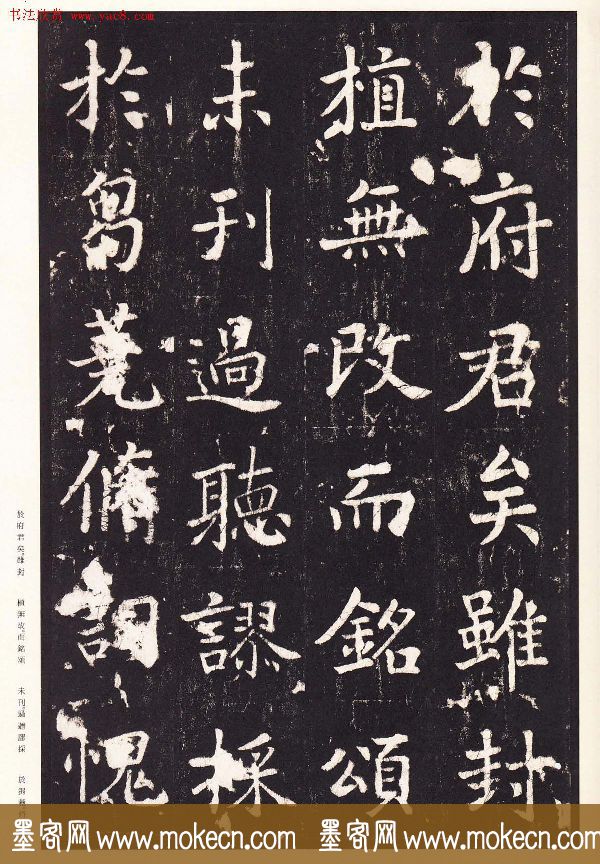 书法欣赏 www.yac8.com
於府君矣雖封
植無改而銘頌
未刊過聽謬採
於芻蕘脩詞愧
於府君矣。雖封 植無改。而銘頌 未刊。過聽謬採
墨客网 www.mokecn.com 墨客网 www.mokecn.com